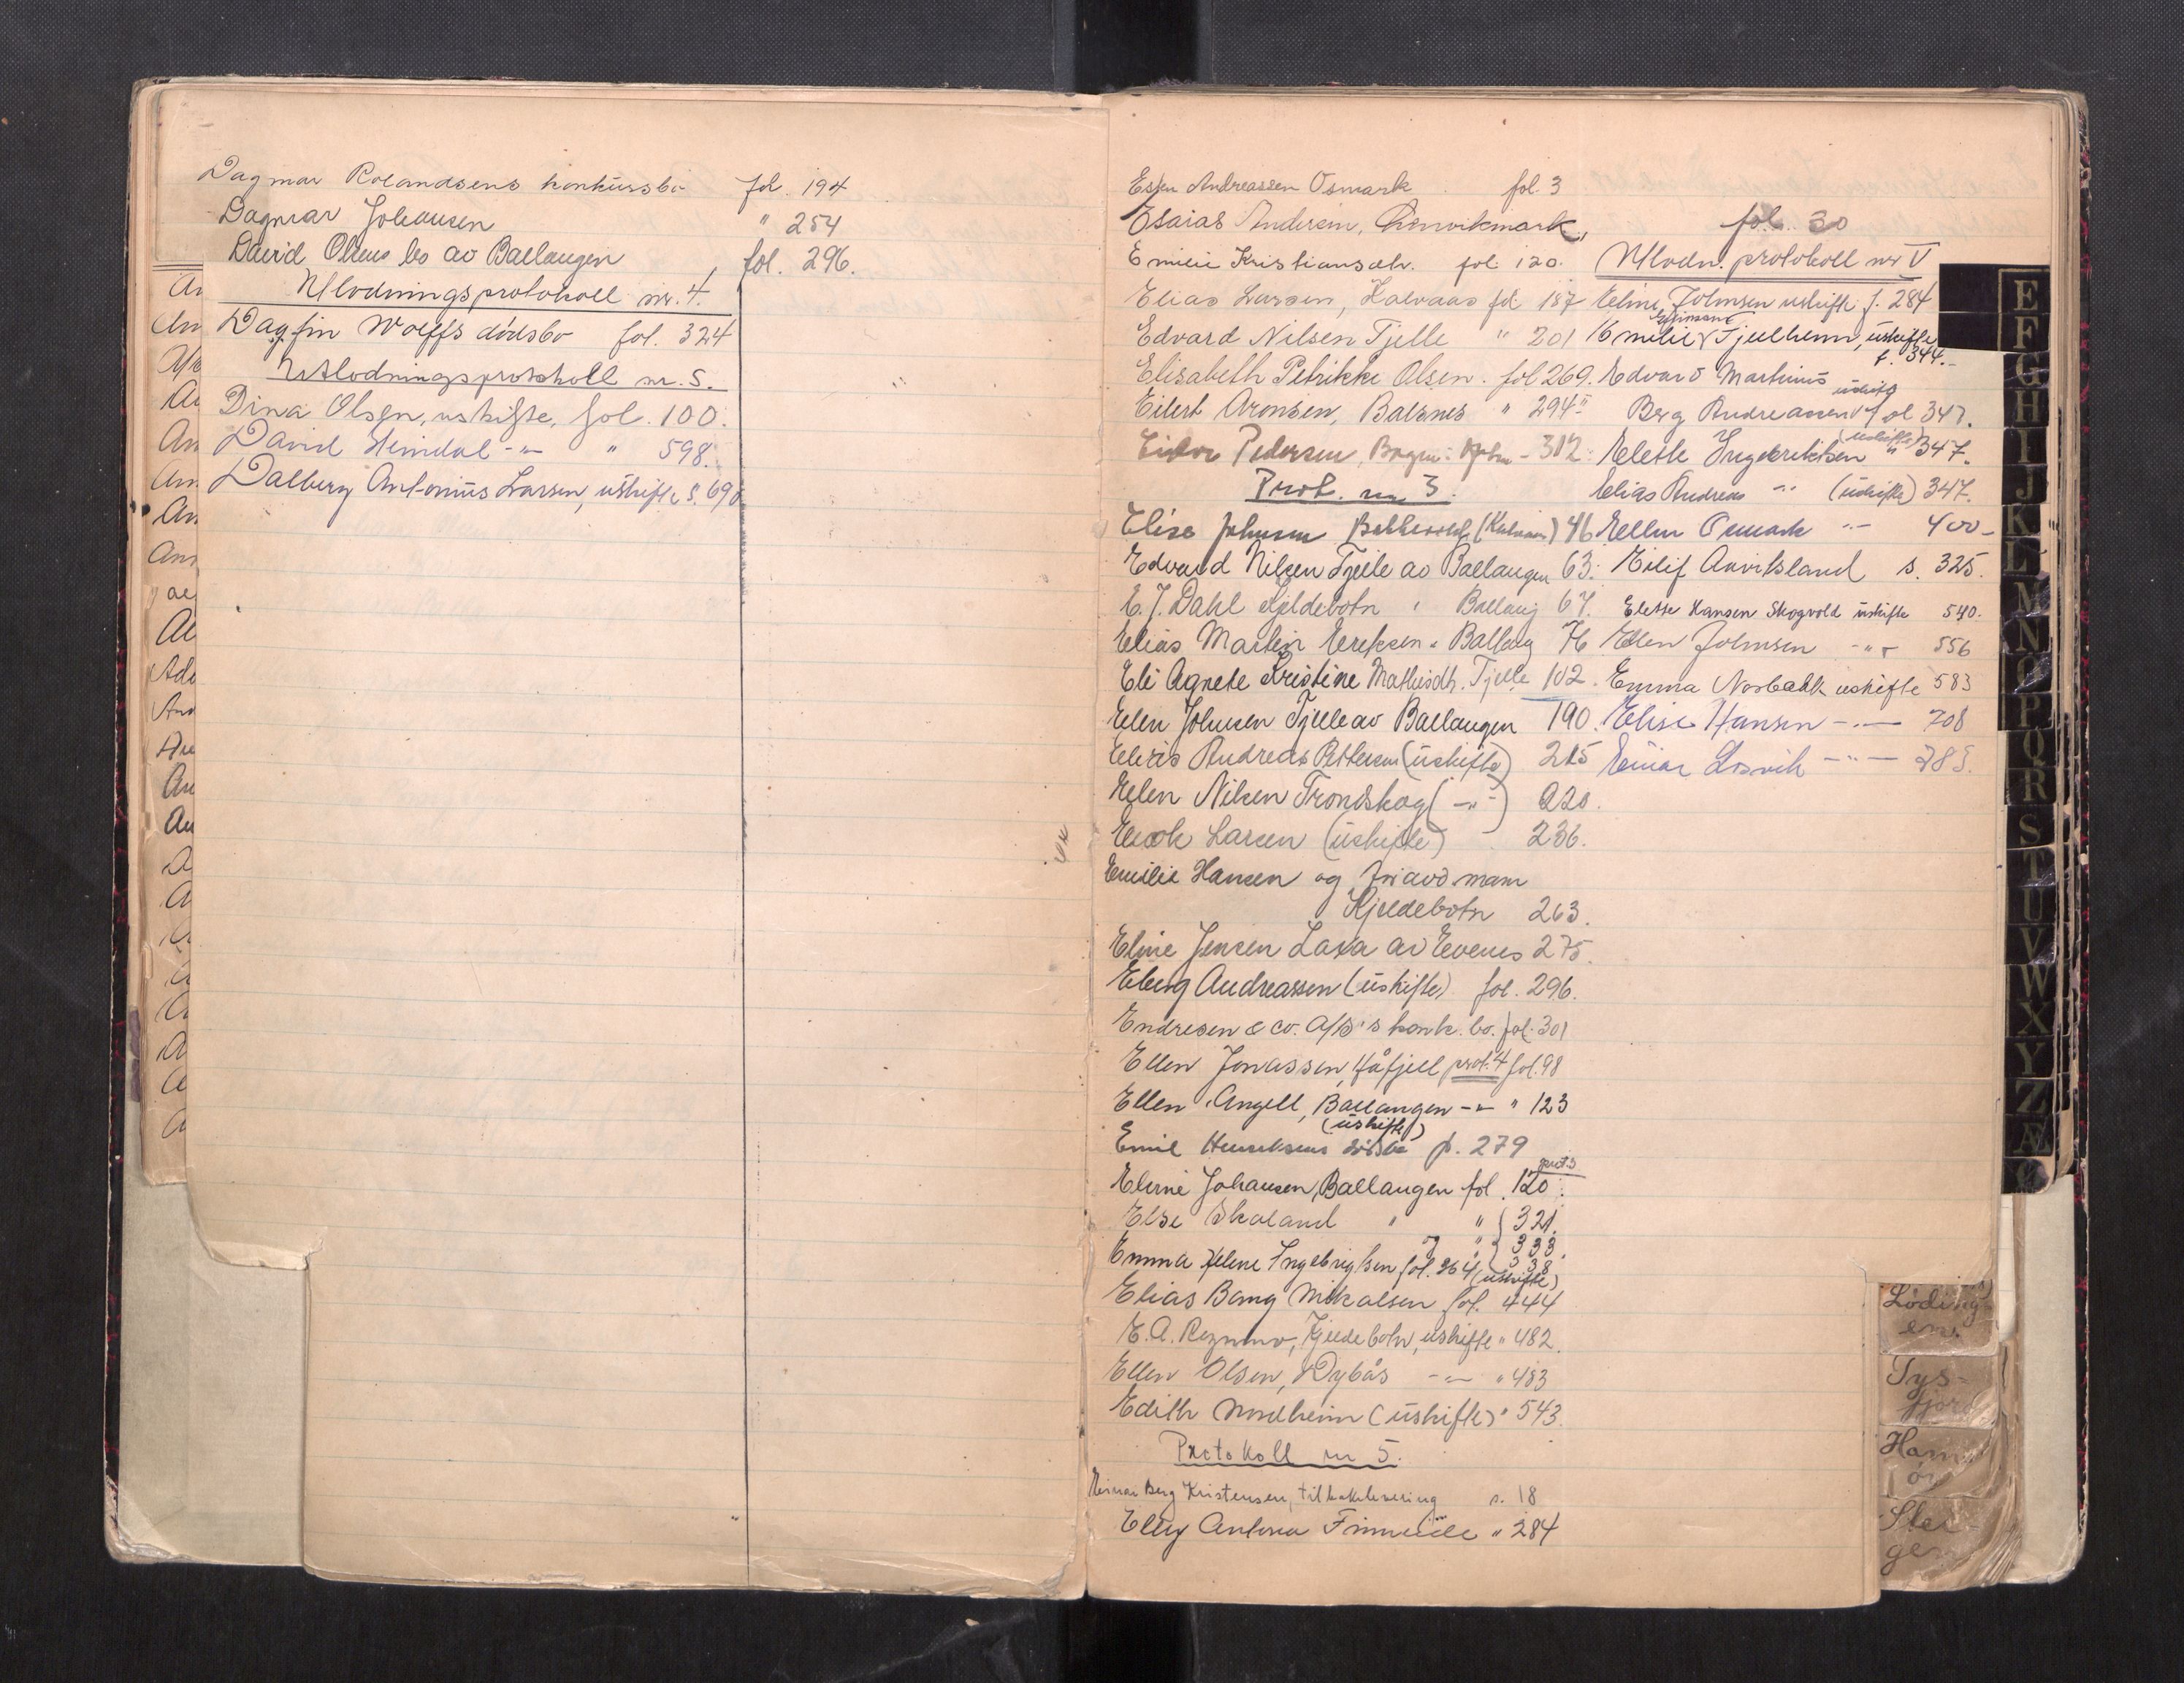 Dagmar Rolandsens konkursbo fol. 194
Dagmar Johansen " 254
David Olsens bo av Ballangen, fol. 296.
Utlodningsprotokoll nr. 4.
Dagfin Wolffs dödsbo fol. 324
Utlodningsprotokoll nr. 5.
Dina Olsen, uskifte, fol. 100.
David Heindal -"- " 598.
Dalberg Antonius Larsen, uskifte s. 690
Andreassen Osmark fol. 3
Esaias Andersen, fol. 30
Emilie Kristiansdtr. fol. 120.
Elias Larsen, fol 187
Edvard Nilsen Tjelle " 201
Elisabeth Petrikke Olsen. fol 269.
Eilert Aronsen, Balsnes " 294
Pedersen, 312
Prot. nr 3.
Elise Johnsen 46
Edvard Nilsen Tjelle av Ballangen 63.
E. J. Dahl Kjeldebotn " Ballang 67.
Elias Martin Eriksen " Ballang 76
Eli Agnete Kristine Mathisdtr. Tjelle 102.
Elen Johnsen Tjelle av Ballangen 190.
Andreas Pettersen (uskifte) 215
Elen Nilsen Trondskog (-"-) 220.
Larsen (uskifte) 236.
Emilie Hansen og mann
Kjeldebotn 263.
Eline Jensen Laxa av Evenes 275.
Andreassen (uskifte) fol. 296.
Endresen & co. A/S's konk. bo. fol. 301
Ellen Jonassen, Håfjell prot. 4 fol. 98
Ellen Angell, Ballangen -"- " 123
(uskifte)
Emil Henriksens 279
Johansen, Ballangen fol. 120. prot. 5
Else Skaland " " 321.
og " 333.
338
Emma Helene Ingebrigtsen fol. 364 (uskifte)
Elias Bang Mikalsen fol. 444
E. A. Kjeldebotn, uskifte " 482.
Ellen Olsen, Dybås -"- " 483
Edith Nordheim (uskifte) " 543.
Protokoll nr 5.
Berg Kristensen, tilbakelevering s. 18
Antona " 284
Utlodn. protokoll nr V
Eline Johnsen uskifte f. 284
Emilie Tjelleim, uskifte
f. 344.-
Edvard Martinus
uskifte
Berg Andreassen fol 347.
Elette Ingebriktsen (uskifte) " 347.
Elias Andreas -"- (uskifte) 347.
Ellen Osmark -"- 400-
Eilif s. 325.
Elette Hansen Skogvold uskifte 540.
Ellen Johnsen -"- 556
Emma Norbakk uskifte 583
Elise Hansen -"- 708
Einar -"- 785.
E
F
G
H
I
J
K
L
M
N
O
P
Q
R
S
T
U
V
W
X
Y
Z
Æ
Ø
Löding
en.
Tys-
fjord
Ham
ör
Stei-
gen